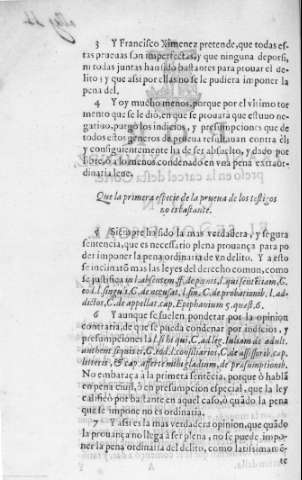 3 Y Francisco Ximenez pretende, que todas es-
tas prueuas son imperfectas, y que ninguna deposi,
ni todas juntas han sido bastantes para prouar el de-
lito: y que assi por ellas no se le pudiera imponer la
pena del.
4 Y oy mucho menos, porque por el vltimo tor
mento que se le dió, en que se prouara que estuuo ne-
gatiuo, purgò los indicios, y presumpciones que de
todos estos generos de prueua resultauan contra èl:
y consiguientemente ha de ser absuelto, y dado por
libre, ò a lo menos condenado en vna pena extraor-
dinaria leue.
Que la primera especie de la prueua de los testigos
no es bastante.
5 Siempre ha sido la mas verdadera, y segura
sentencia, que es necessario plena prouança para po
der imponer la pena ordinaria de vn delito. Y a esto
se inclinarõ mas las leyes del derecho comun, como
se justifica in l. absentem ff. de pœnis, l. qui sententiam, C.
eod. l. singuli, C. de accusat. l. fin. C. de probationib. l. ad-
dictos, C. de appellat. cap. Epiphanium 5. quæst. 6.
6 Y aunque se suelen ponderar por la opinion
contraria, de que se pueda condenar por indicios, y
presumpciones la l. si hi qui, C. ad leg. Iuliam de adult.
authent. si quis ei, C. eod. l. consiliarios, C. de assessorib. cap.
litteris, & cap. afferte mihi gladium, de præsumptionib.
No embaraça a la primera sentẽcia, porque ò hablã
en pena ciuil, ò en presumpcion especial, que la ley
calificò por bastante en aquel caso, ò quãdo la pena
que se impone no es ordinaria.
7 Y assi es la mas verdadera opinion, que quãdo
la prouança no llega à ser plena, no se puede impo-
ner la pena ordinaria del delito, como latissimamẽ
te